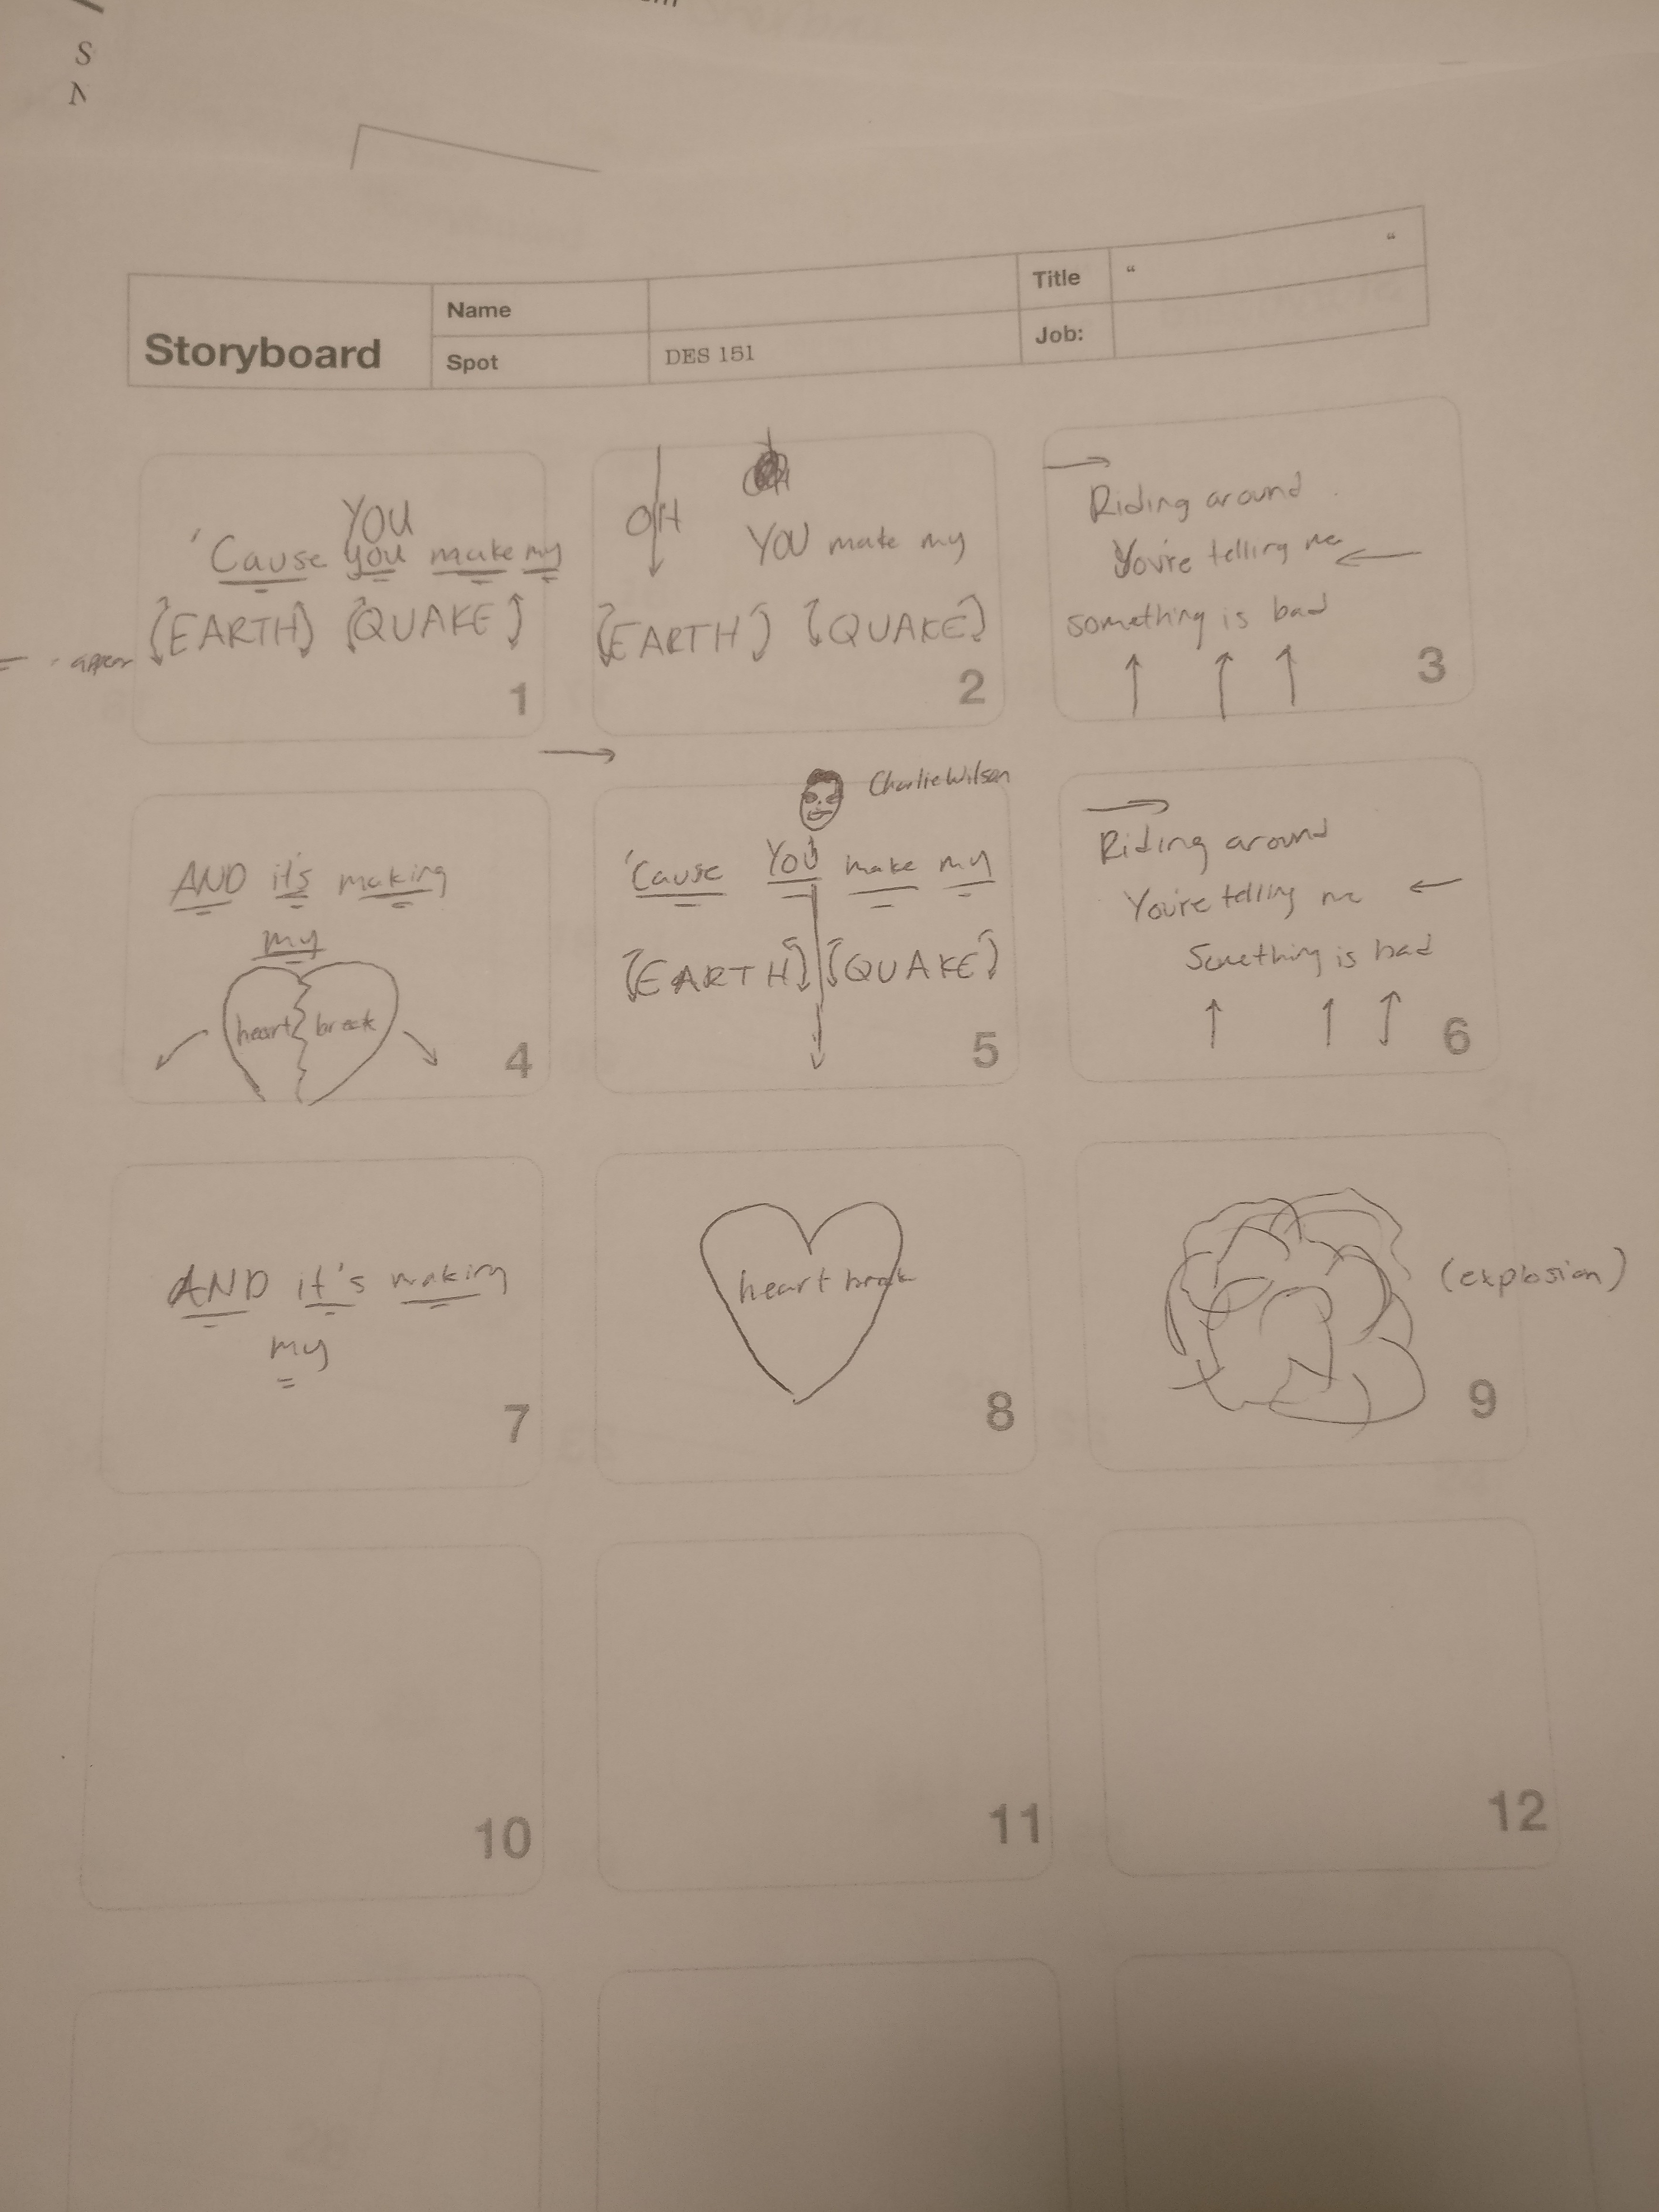 S
N
Storyboard
Name
Title
“ “
Spot
DES 151
Job:
YOU
'Cause you make my
EARTH QUAKE
= - appear
1
OH
YOU make my
EARTH QUAKE
2
Riding around
You're telling me
something is bad
3
AND it's making
my
heart break
4
Charlie Wilson
'Cause YOU make my
EARTH QUAKE
5
Riding around
You're telling me
Something is bad
6
AND it's making
my
7
heart break
8
(explosion)
9
10
11
12